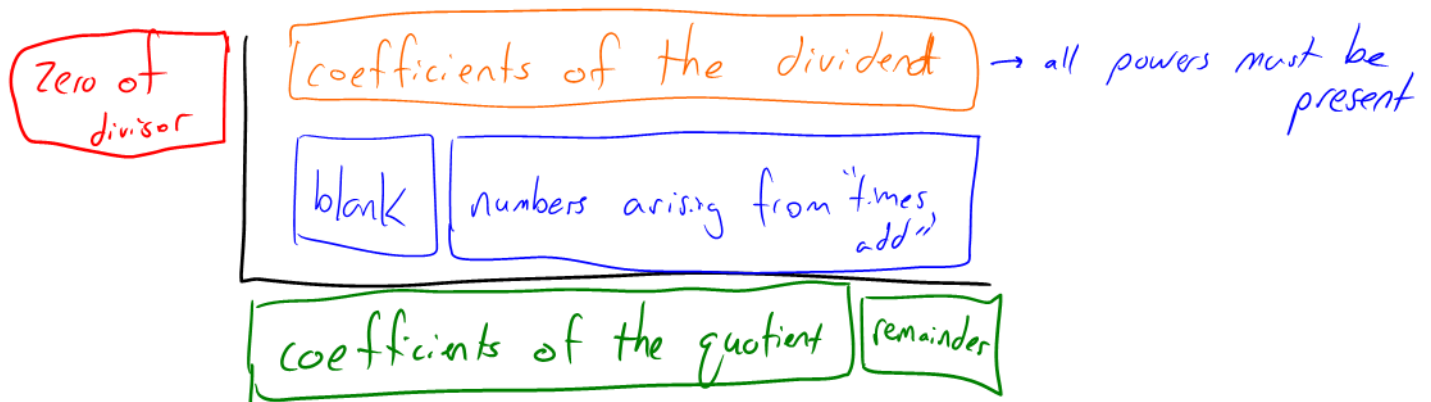 Zero of
divisor
coefficients of the dividend → all powers must be
present
blank
numbers arising from "times,
add"
coefficients of the quotient
remainder